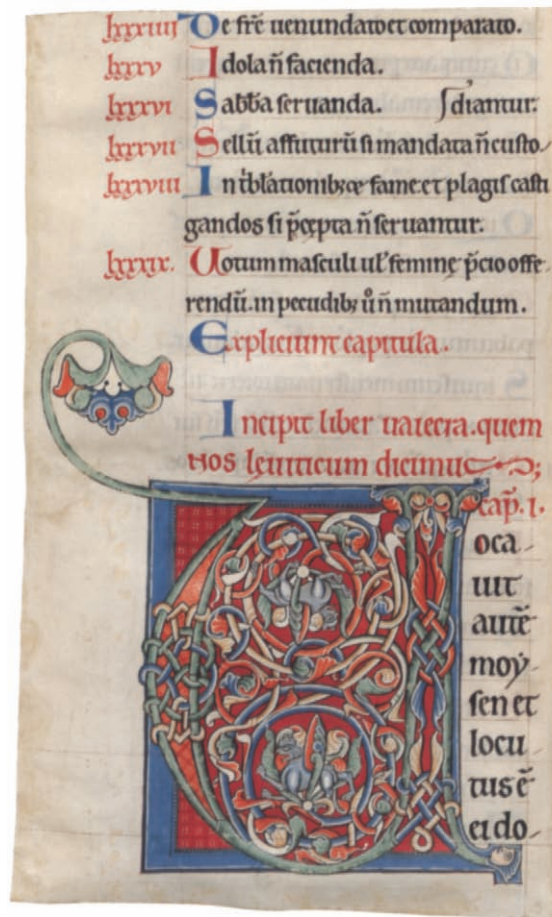 lxxxiiii De fr̄e uenundato et comparato.
lxxxv Idola ñ facienda.
lxxxvi Sabb̄a seruanda. ſdiantur.
lxxxvii Sellū affuturū si mandata ñ custo
lxxxviii In t̄blationibꝫ fame et plagis casti
gandos si p̄cepta ñ seruantur.
lxxxix. Uotum masculi ul' feminę p̄cio offe
rendū. in pecudibꝫ ů ñ mutandum.
Expliciunt capitula.
Incipit liber uaiecra. quem
nos leuiticum dicimus;
cap̄. i.
V oca
uit
autē
moẏ
sen et
locu
tus ē
ei do